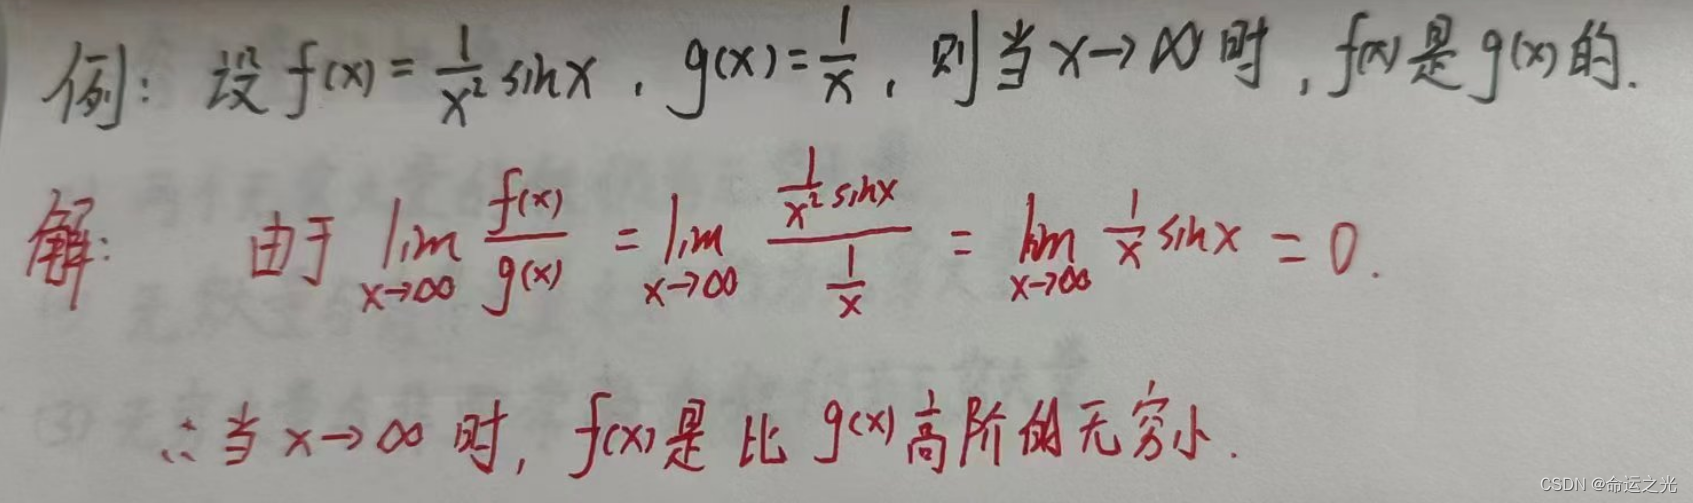 例: 设 f(x) = 1/x² sinx , g(x) = 1/x , 则当 x→∞ 时 , f(x) 是 g(x) 的.
解: 由于 lim x→∞ f(x)/g(x) = lim x→∞ (1/x² sinx)/(1/x) = lim x→∞ 1/x sinx = 0.
∴ 当 x→∞ 时, f(x) 是 比 g(x) 高阶的无穷小.
CSDN @命运之光